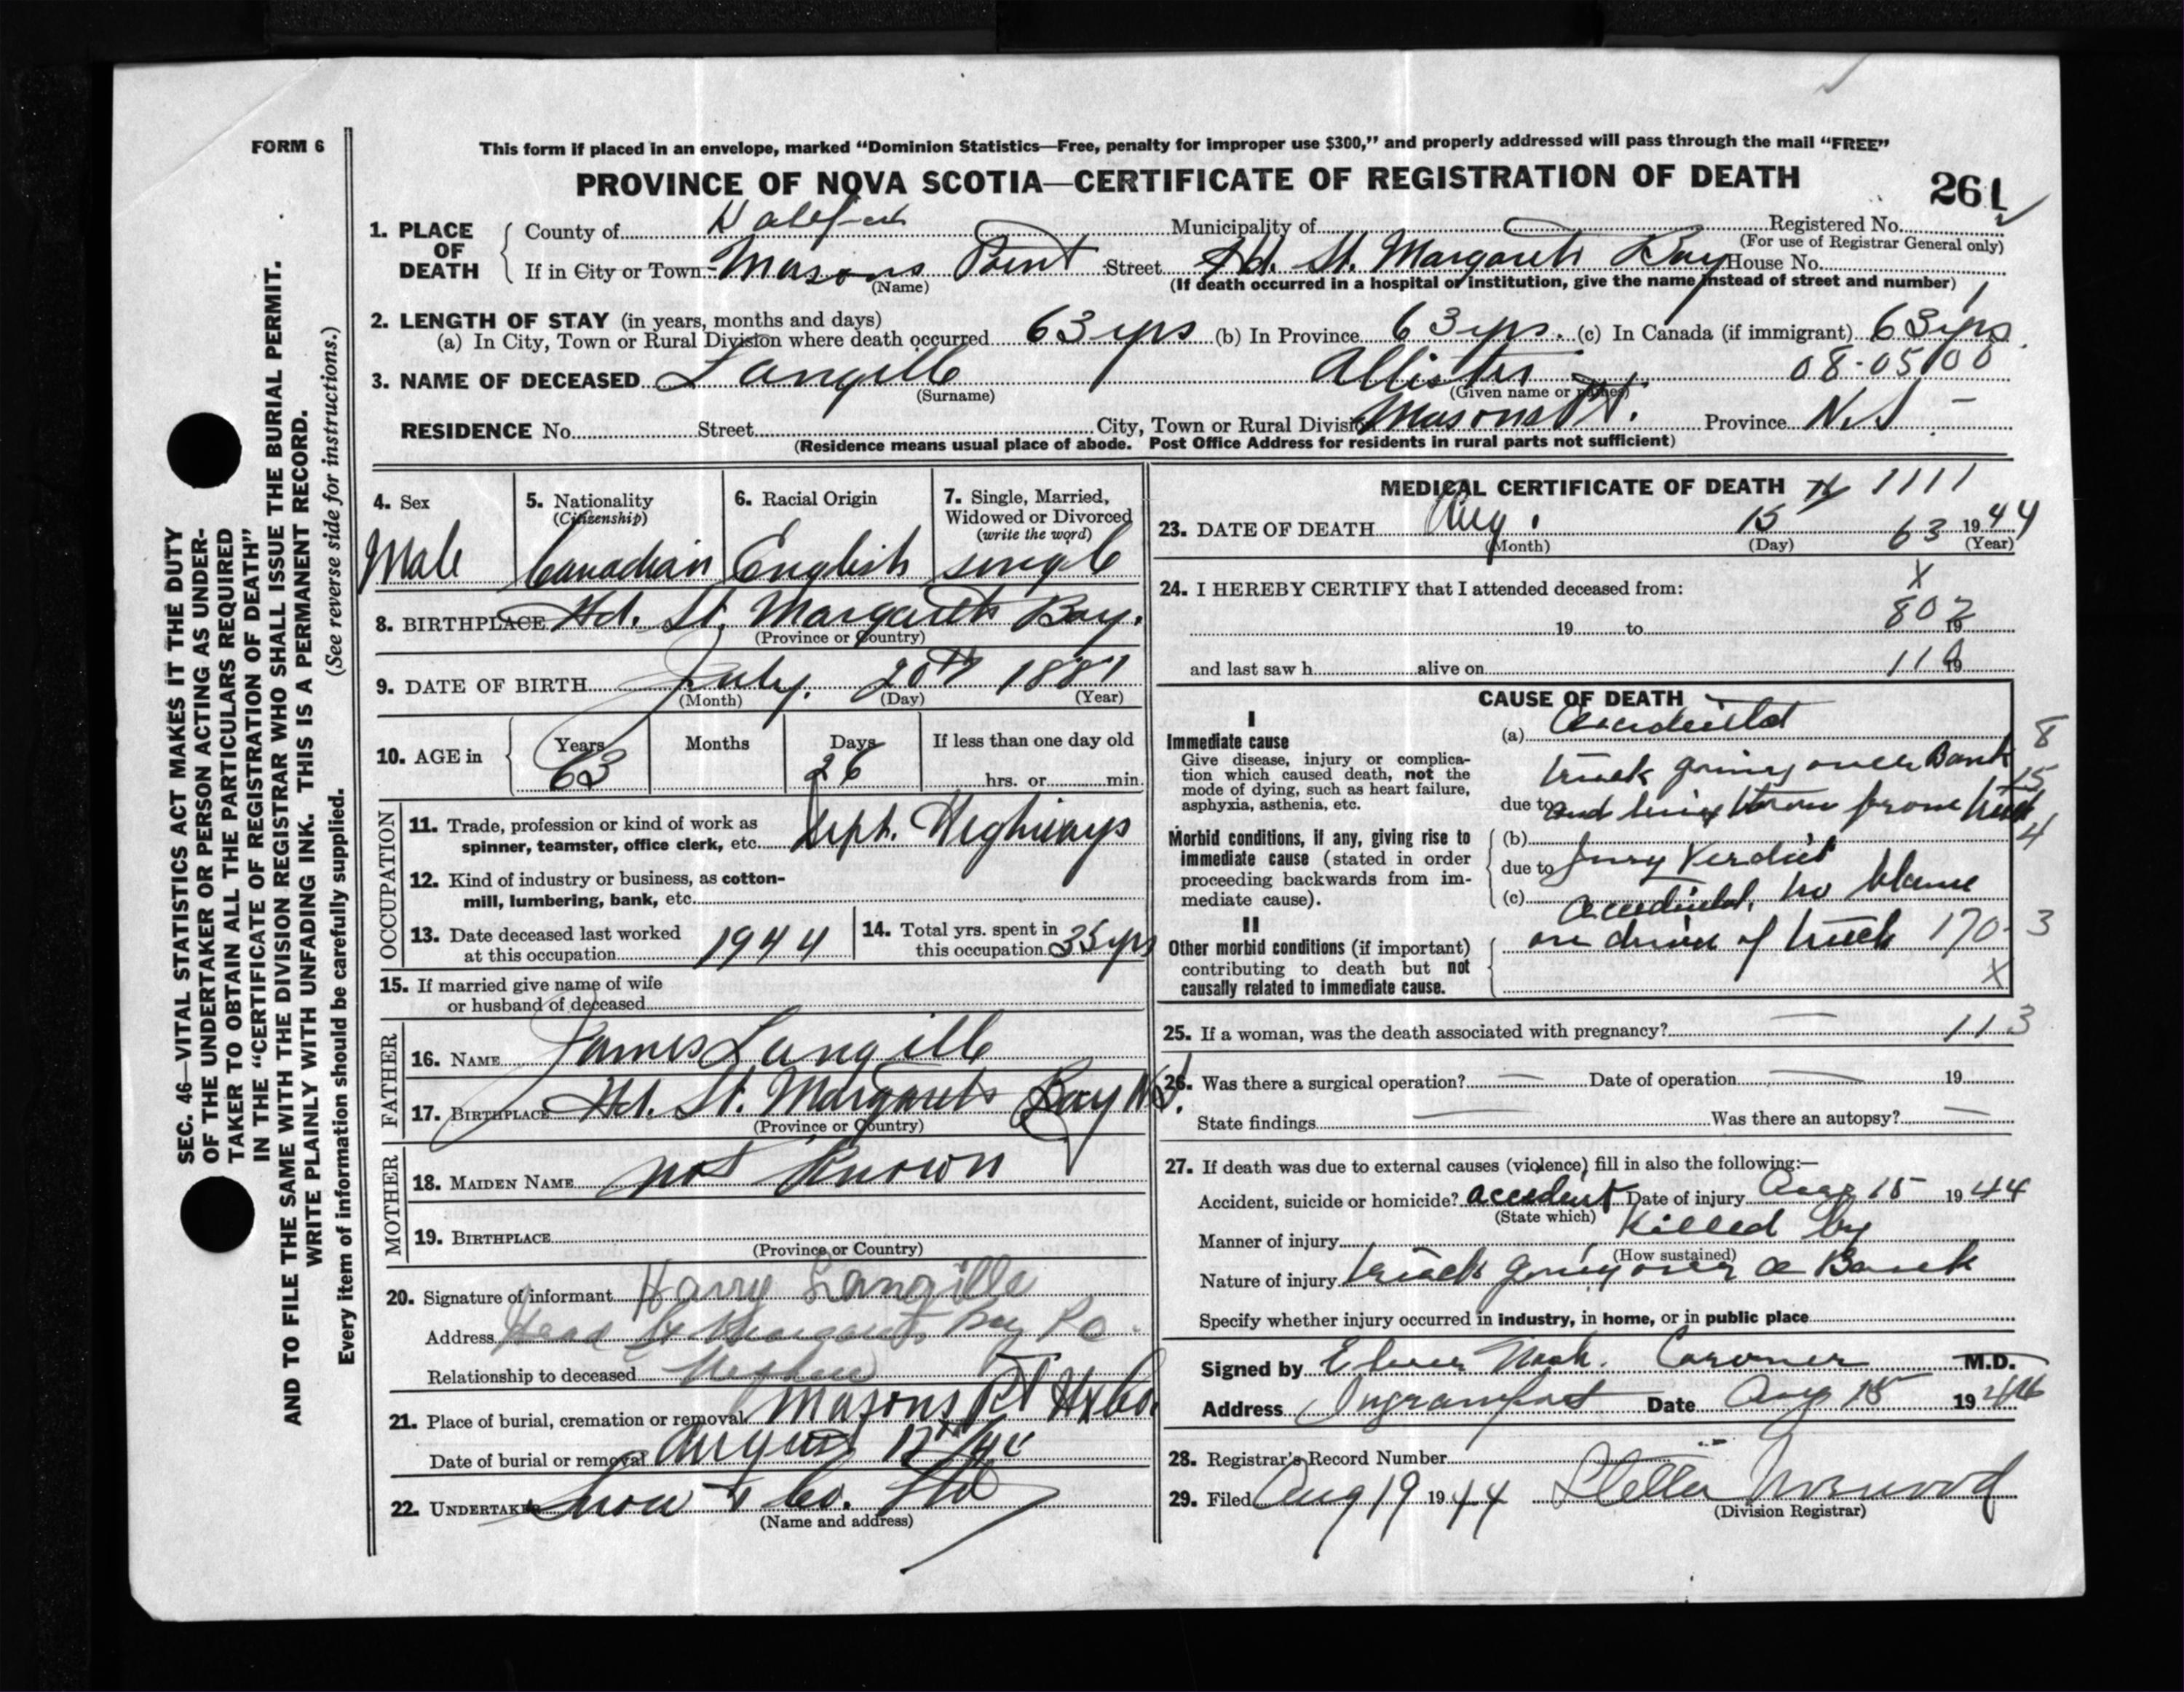 FORM 6
This form if placed in an envelope, marked “Dominion Statistics—Free, penalty for improper use $300,” and properly addressed will pass through the mail “FREE”
PROVINCE OF NOVA SCOTIA—CERTIFICATE OF REGISTRATION OF DEATH
261
1. PLACE OF DEATH
County of Halifax Municipality of Registered No.
(For use of Registrar General only)
If in City or Town Masons Point Street Hd. St. Margarets Bay House No.
(Name) (If death occurred in a hospital or institution, give the name instead of street and number)
2. LENGTH OF STAY (in years, months and days)
(a) In City, Town or Rural Division where death occurred 63 yrs (b) In Province 63 yrs. (c) In Canada (if immigrant) 63 yrs
08-05100
3. NAME OF DECEASED Langille Allister
(Surname) (Given name or names)
RESIDENCE No. Street City, Town or Rural Division Masons Pt. Province N.S.
(Residence means usual place of abode. Post Office Address for residents in rural parts not sufficient)
4. Sex
Male
5. Nationality
(Citizenship)
Canadian
6. Racial Origin
English
7. Single, Married,
Widowed or Divorced
(write the word)
single
8. BIRTHPLACE Hd. St. Margarets Bay.
(Province or Country)
9. DATE OF BIRTH July. 20th 1881
(Month) (Day) (Year)
10. AGE in Years Months Days If less than one day old
63 26 hrs. or min.
OCCUPATION
11. Trade, profession or kind of work as
spinner, teamster, office clerk, etc. Dept. Highways
12. Kind of industry or business, as cotton-
mill, lumbering, bank, etc.
13. Date deceased last worked
at this occupation 1944
14. Total yrs. spent in
this occupation 35 yrs
15. If married give name of wife
or husband of deceased
FATHER
16. NAME James Langille
17. BIRTHPLACE Hd. St. Margarets Bay N.S.
(Province or Country)
MOTHER
18. MAIDEN NAME not Known
19. BIRTHPLACE
(Province or Country)
20. Signature of informant Harry Langille
Address Head St Margarets Bay P.O.
Relationship to deceased Nephew
21. Place of burial, cremation or removal Masons Pt Hx Co.
Date of burial or removal August 17th/44
22. UNDERTAKER Snow & Co. Ltd
(Name and address)
MEDICAL CERTIFICATE OF DEATH 1111
23. DATE OF DEATH Aug. 15 63 1944
(Month) (Day) (Year)
24. I HEREBY CERTIFY that I attended deceased from:
X
19 to 802 19
and last saw h alive on 110 19
CAUSE OF DEATH
I
Immediate cause
Give disease, injury or complica-
tion which caused death, not the
mode of dying, such as heart failure,
asphyxia, asthenia, etc.
Morbid conditions, if any, giving rise to
immediate cause (stated in order
proceeding backwards from im-
mediate cause).
II
Other morbid conditions (if important)
contributing to death but not
causally related to immediate cause.
(a) accidental
truck going over Bank
due to and being thrown from truck
(b)
due to Jury Verdict
(c) accidental, no blame
on driver of truck 170-3
X
8
15
4
25. If a woman, was the death associated with pregnancy? — 113
26. Was there a surgical operation? — Date of operation — 19
State findings — Was there an autopsy? —
27. If death was due to external causes (violence) fill in also the following:—
Accident, suicide or homicide? accident Date of injury Aug 15 1944
(State which)
Manner of injury Killed by
(How sustained)
Nature of injury truck going over a Bank
Specify whether injury occurred in industry, in home, or in public place
Signed by Elmer Nash. Coroner M.D.
Address Ingramport Date Aug 15 1944
28. Registrar's Record Number
29. Filed Aug 19 1944 Stella Norwood
(Division Registrar)
SEC. 46—VITAL STATISTICS ACT MAKES IT THE DUTY
OF THE UNDERTAKER OR PERSON ACTING AS UNDER-
TAKER TO OBTAIN ALL THE PARTICULARS REQUIRED
IN THE “CERTIFICATE OF REGISTRATION OF DEATH”
AND TO FILE THE SAME WITH THE DIVISION REGISTRAR WHO SHALL ISSUE THE BURIAL PERMIT.
WRITE PLAINLY WITH UNFADING INK. THIS IS A PERMANENT RECORD.
Every item of information should be carefully supplied. (See reverse side for instructions.)